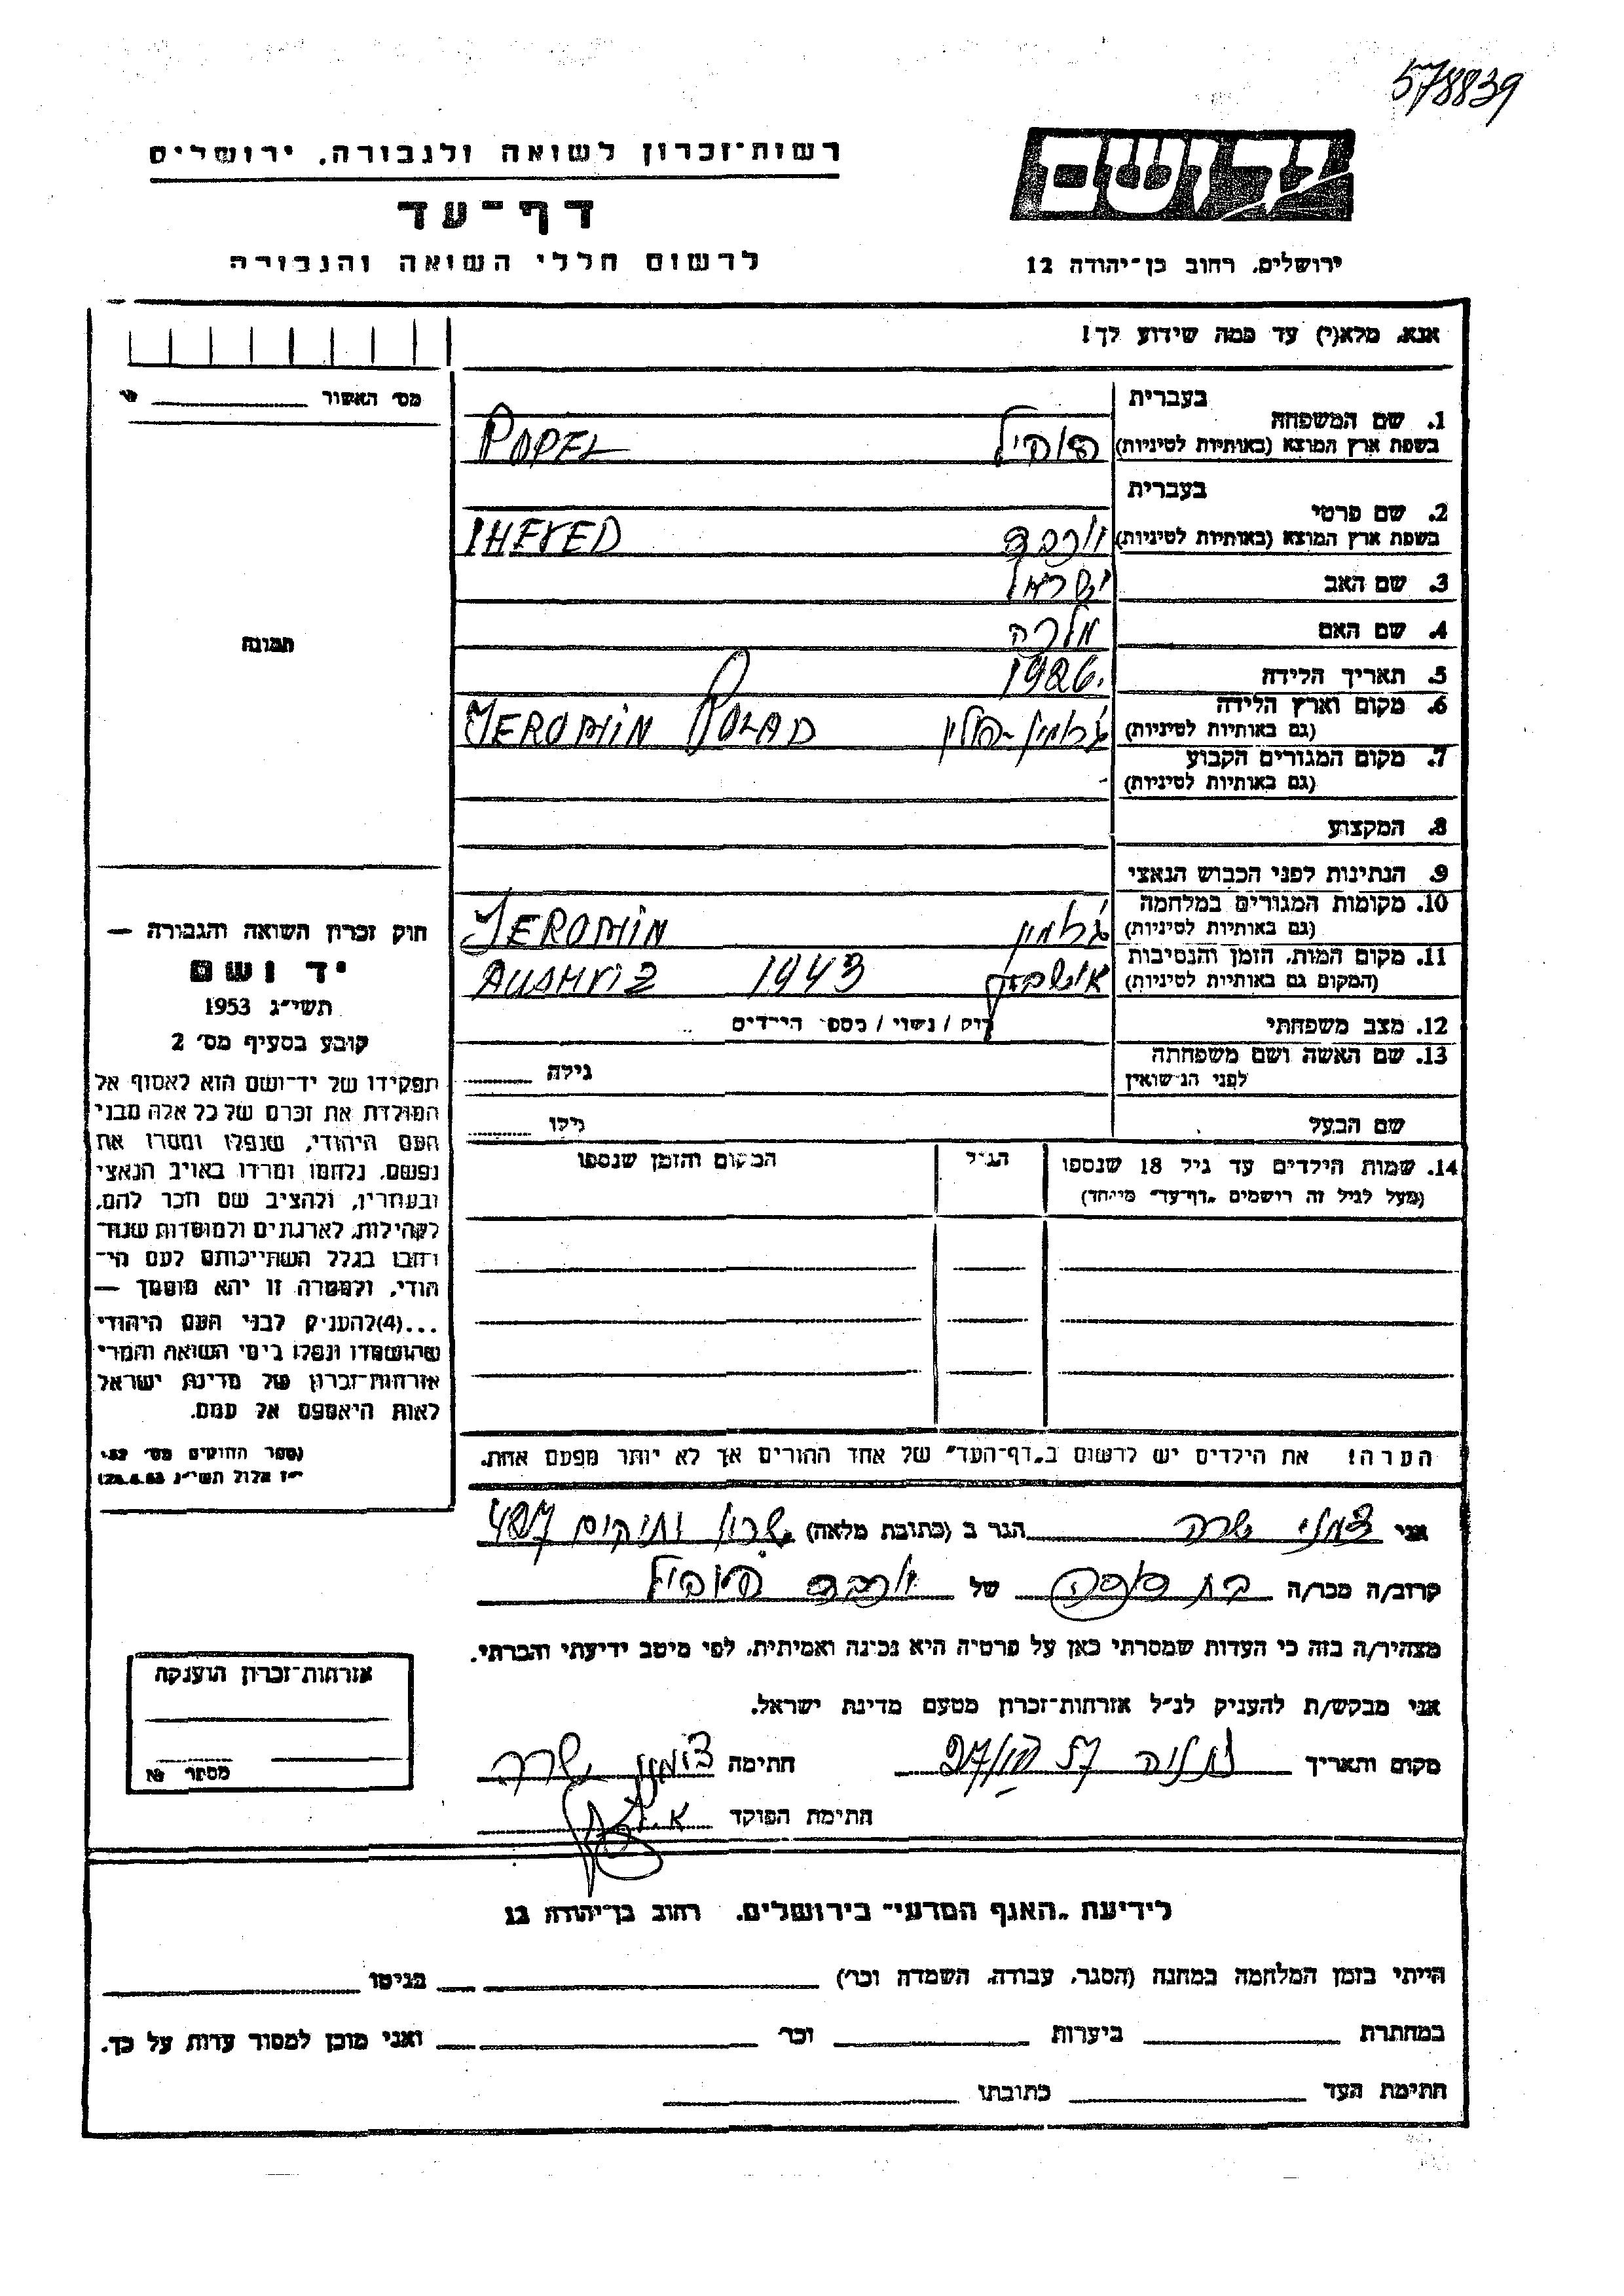 578839
יד ושם
רשות־זכרון לשואה ולגבורה, ירושלים
דף־עד
לרשום חללי השואה והגבורה
ירושלים, רחוב בן־יהודה 12
אנא, מלא(י) עד כמה שידוע לך!
מס׳ האשור
בעברית
1. שם המשפחה
בשפת ארץ המוצא (באותיות לטיניות)
POPEL
בעברית
2. שם פרטי
בשפת ארץ המוצא (באותיות לטיניות)
3. שם האב ישראל
4. שם האם מלכה
תמונה
5. תאריך הלידה 1926.
6. מקום וארץ הלידה
(גם באותיות לטיניות)
JEROMIN POLAD
7. מקום המגורים הקבוע
(גם באותיות לטיניות)
8. המקצוע
9. הנתינות לפני הכבוש הנאצי
10. מקומות המגורים במלחמה
(גם באותיות לטיניות)
JEROMIN
11. מקום המות, הזמן והנסיבות
(המקום גם באותיות לטיניות)
1943
12. מצב משפחתי רוק / נשוי / מספר הילדים
13. שם האשה ושם משפחתה
לפני הנישואין גילה
שם הבעל גילו
14. שמות הילדים עד גיל 18 שנספו הגיל המקום והזמן שנספו
(מעל לגיל זה רושמים „דף־עד״ מיוחד)
חוק זכרון השואה והגבורה —
יד ושם
תשי״ג 1953
קובע בסעיף מס׳ 2
תפקידו של יד־ושם הוא לאסוף אל
המולדת את זכרם של כל אלה מבני
העם היהודי, שנפלו ומסרו את
נפשם, נלחמו ומרדו באויב הנאצי
ובעוזריו, ולהציב שם וזכר להם,
לקהילות, לארגונים ולמוסדות שנח־
רבו בגלל השתייכותם לעם הי־
הודי, ולמטרה זו יהא מוסמך —
...(4)להעניק לבני העם היהודי
שהושמדו ונפלו בימי השואה והמרי
אזרחות־זכרון של מדינת ישראל
לאות היאספם אל עמם.
(ספר החוקים מס׳ 132
הערה! את הילדים יש לרשום ב„דף־העד״ של אחד ההורים אך לא יותר מפעם אחת.
אני שרה הגר ב (כתובת מלאה)
קרוב/ה מכר/ה בת דודה של
מצהיר/ה בזה כי העדות שמסרתי כאן על פרטיה היא נכונה ואמיתית, לפי מיטב ידיעתי והכרתי.
אני מבקש/ת להעניק לנ״ל אזרחות־זכרון מטעם מדינת ישראל.
מקום ותאריך נתניה חתימה שרה
חתימת הפוקד
אזרחות־זכרון הוענקה
מספר №
לידיעת „האגף המדעי״ בירושלים, רחוב בן־יהודה 12
הייתי בזמן המלחמה במחנה (הסגר, עבודה, השמדה וכו׳) בגיטו
במחתרת ביערות וכו׳ ואני מוכן למסור עדות על כך.
חתימת העד כתובתו